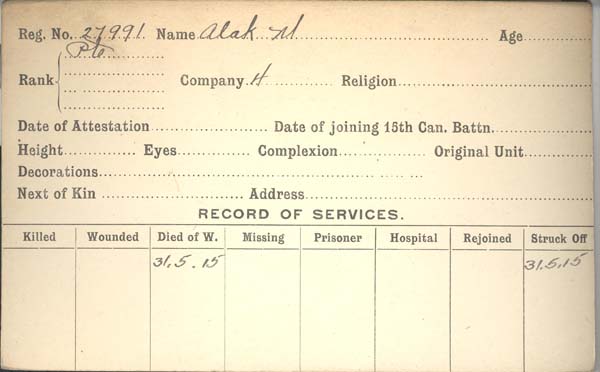 Reg. No. 27991. Name Alak M Age
Rank Pte Company H Religion
Date of Attestation Date of joining 15th Can. Battn.
Height Eyes Complexion Original Unit
Decorations
Next of Kin Address
RECORD OF SERVICES.
Killed Wounded Died of W. Missing Prisoner Hospital Rejoined Struck Off
31.5.15 31.5.15